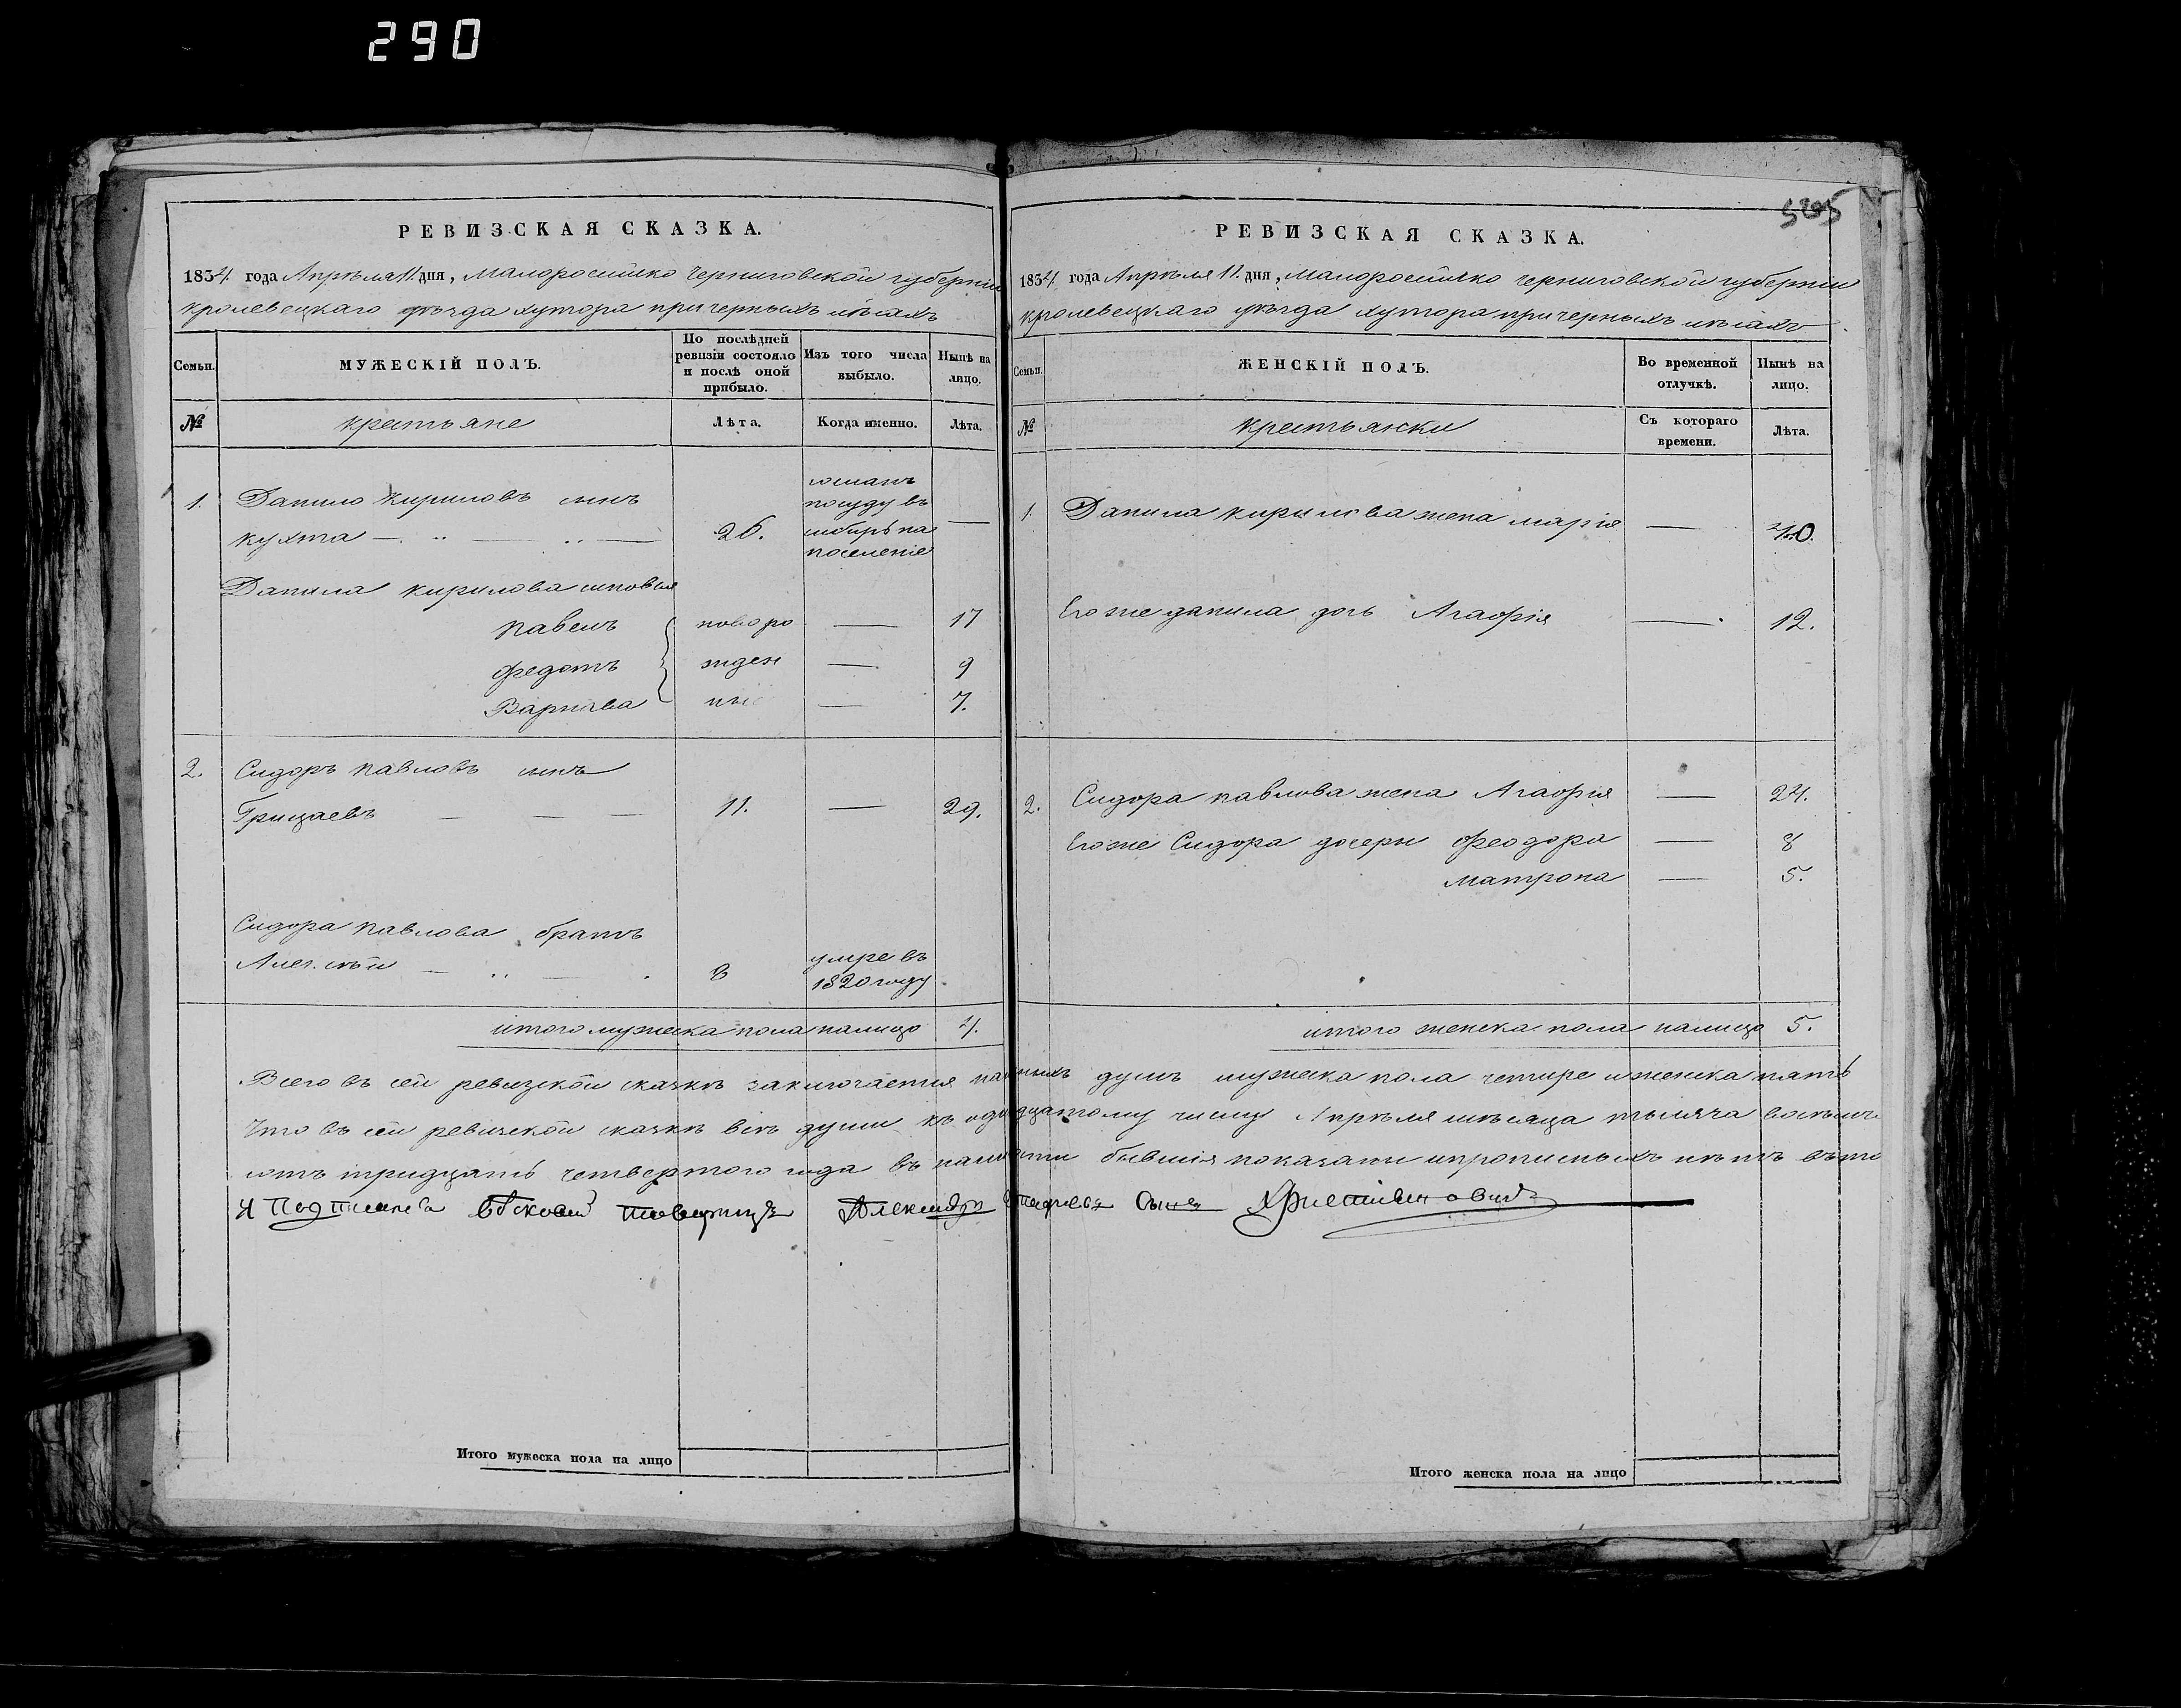 290
РЕВИЗСКАЯ СКАЗКА.
1834 года Апреля 11 дня, малоросийско Черниговской губерніи
кролевецкаго уѣзда хутора при черныхъ лѣсахъ
Семьи.
МУЖЕСКІЙ ПОЛЪ.
По послѣдней ревизіи состояло и послѣ оной прибыло.
Изъ того числа выбыло.
Нынѣ на лицо.
№
крестьяне
Лѣта.
Когда именно.
Лѣта.
1. Данило кириловъ сынъ
кухта 26. сосланъ посуду въ сибирь на поселеніе
Данила кирилова сыновья
павелъ новоро 17
Федотъ жден 9
Варнава ные 7.
2. Сидоръ павловъ сынъ
Грицаевъ 11. 29.
Сидора павлова братъ
Алексѣй 8 умре въ 1820 году
итого мужеска пола налицо 4.
Итого мужеска пола на лицо
505
РЕВИЗСКАЯ СКАЗКА.
1834 года Апреля 11 дня, малоросийско черниговской губерніи
кролевецкаго уѣзда хутора при черныхъ лѣсахъ
Семьи.
ЖЕНСКІЙ ПОЛЪ.
Во временной отлучкѣ.
Нынѣ на лицо.
№
крестьянки
Съ котораго времени.
Лѣта.
1. Данила кирилова жена марія 40.
Егоже данила дочь Агафія 12.
2. Сидора павлова жена Агафія 24.
Егоже Сидора дочери Феодора 8
матрона 5.
итого женска пола налицо 5.
Всего въ сей ревизской сказкѣ заключается наличныхъ душъ мужеска пола четире и женска пять
Что въ сей ревизской сказкѣ всѣ души къ одинадцатому числу Апрѣля мѣсяца тысяча восемъ
сотъ тридцать четвертого года въ наличности бывшія показаны и прописныхъ нѣтъ въ том
Я Подписался Александръ сынъ Христиановичъ
Итого женска пола на лицо